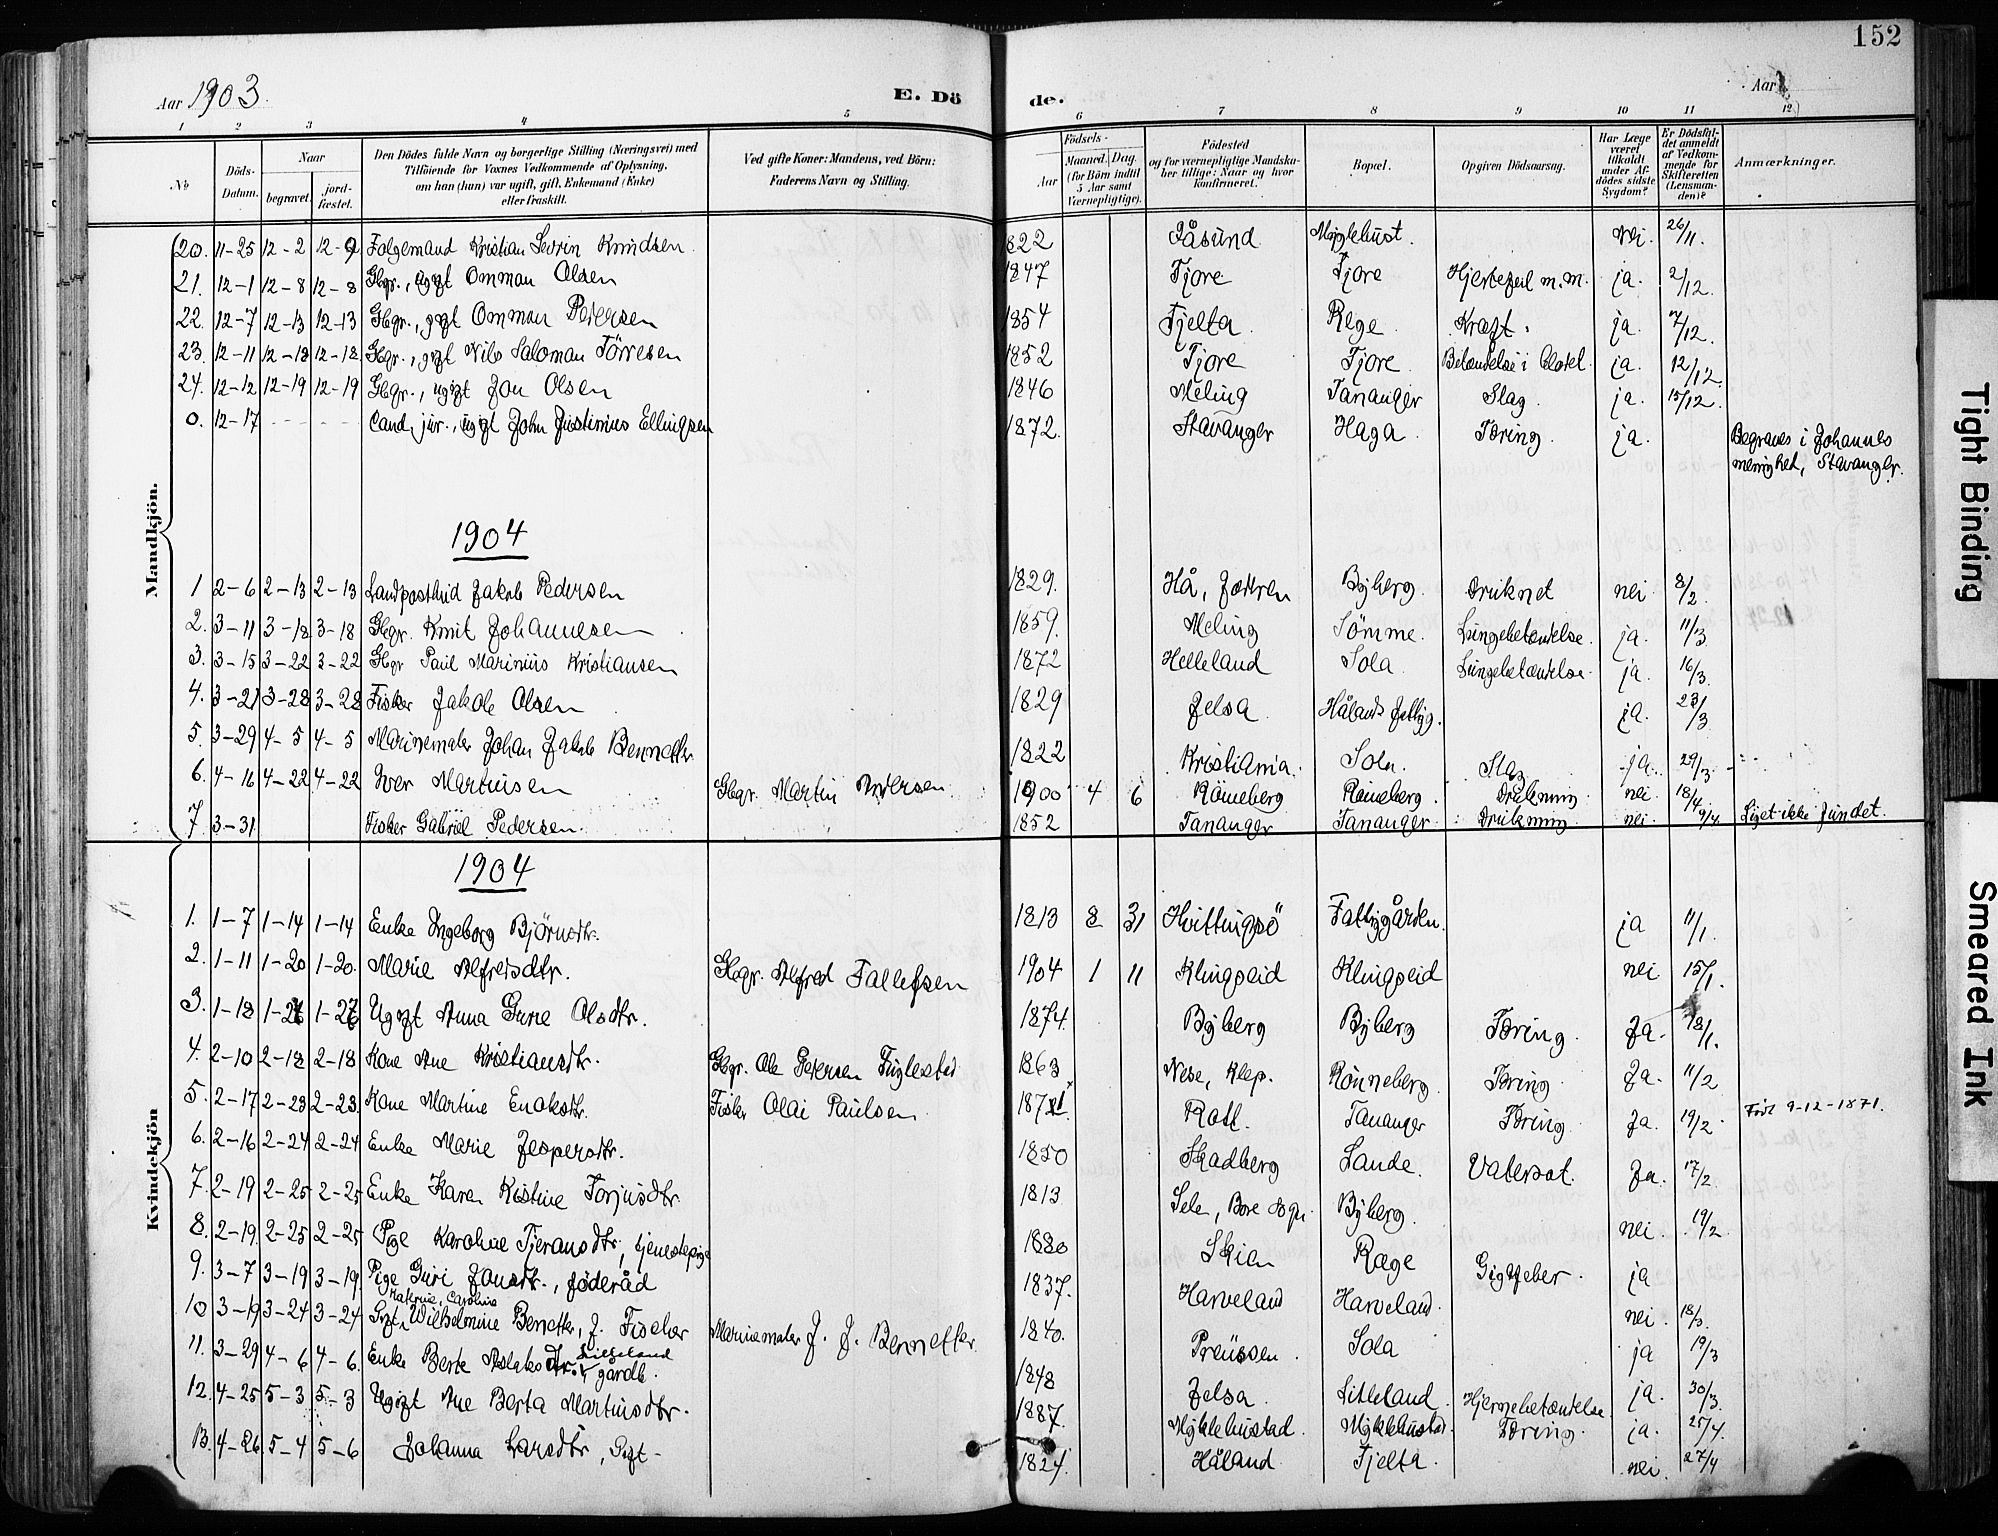 152
Aar 1903.
E. Dö de.
Aar
1 2 3 4 5 6 7 8 9 10 11 12
No
Döds-Datum.
Naar begravet. jordfæstet.
Den Dödes fulde Navn og borgerlige Stilling (Næringsvei) med Tilföiende for Voxnes Vedkommende af Oplysning, om han (hun) var ugift, gift, Enkemand (Enke) eller fraskilt.
Ved gifte Koner: Mandens, ved Börn: Faderens Navn og Stilling.
Födsels-
Aar Maaned. Dag. (for Börn indtil 5 Aar samt Værnepligtige).
Födested og for værnepligtige Mandskaber tillige: Naar og hvor konfirmeret.
Bopæl.
Opgiven Dödsaarsag.
Har Læge været tilkaldt under Afdödes sidste Sygdom?
Er Dödsfaldet anmeldt af Vedkommende for Skifteretten (Lensmanden)?
Anmærkninger.
Mandkjön.
20. 11-25 12-2 12-9 Folgemand Kristian Severin Knudsen 1822 Påsund Myklehust. nei. 26/11.
21. 12-1 12-8 12-8 Gbgr., ugft Omman Olsen 1847 Tjore Tjore Hjertefeil m.m. ja. 2/12.
22. 12-7 12-13 12-13 Gbgr., gft Omman Petersen 1854 Tjelta Rege Kræft. ja. 7/12.
23. 12-11 12-18 12-18 Gbgr., gft Nils Saloman Törresen 1852 Tjore Tjore Betændelse i ja. 12/12.
24. 12-12 12-19 12-19 Gbgr., ugift Jon Olsen 1846 Meling Tananger Slag. ja. 15/12.
0. 12-17 Cand. jur., ugft John Justinius Ellingsen 1872. Stavanger Haga Tæring. ja. Begraves i Johannes menighed, Stavanger.
1904
1 2-6 2-13 2-13 Landpostbud Jakob Pedersen 1829. Hå, Jæren Byberg. Druknet nei 8/2.
2. 3-11 3-18 3-18 Gbgr. Knut Johannesen 1859. Meling Sömme. Lungebetændelse. ja. 11/3
3. 3-15 3-22 3-22 Gbgr Paul Marinius Kristiansen 1872 Helleland Sola. Lungebetændelse. ja. 16/3.
4. 3-21 3-28 3-28 Fisker Jakob Olsen 1829 Jelsa Hålands fattig. ja. 23/3
5. 3-29 4-5 4-5 Marinemaler Johan Jakob Bennetter 1822 Kristiania. Sola. Slag ja. 29/3.
6. 4-16 4-22 4-22 Iver Martinsen Gbgr. Martin Andersen 1900 4 6 Råmeberg Råmeberg. Drukning nei. 18/4
7 3-31 Fisker Gabriel Pedersen. 1852 Tananger Tananger. Drukning nei. 9/4 Liget ikke fundet.
Kvindekjön
1904
1. 1-7 1-14 1-14 Enke Ingeborg Björnsdtr. 1813 8 31 Hvittingsö Fattiggården. ja 11/1.
2. 1-11 1-20 1-20. Marie Alfredsdtr. Gbgr. Alfred Tallefsen 1904 1 11 Klingseid Klingseid nei 15/1.
3. 1-18 1-26 1-26 Ugft Anna Gurie Olsdtr. 1874. Byberg Byberg Tæring. Ja. 18/1.
4. 2-10 2-18 2-18 Kone Ane Kristiansdtr. Gbgr. Ole Petersen Fuglestad 1863 Nese, Klep. Rönneberg. Tæring. Ja. 11/2
5. 2-17 2-23 2-23. Kone Martine Enoksdtr. Fisker Olai Paulsen 1871 Rott. Tananger Tæring. Ja. 19/2. Född 9-12-1871.
6. 2-16 2-24 2-24 Enke Marie Jespersdtr. 1850 Skadberg Sande. Vatersot. Ja. 17/2.
7. 2-19 2-25 2-25 Enke Karen Kistine Torjusdtr 1813 Sele, Bore sogn. Byberg. nei. 19/2.
8. 2-19. 2-25 2-25 Pige Karoline Tjeransdtr, tjenestepige 1880 Skien Ræge Gigtfeber. ja
9. 3-7 3-19 3-19. Pige Guri Jonsdtr., föderåd 1837. Harveland Harveland. nei. 18/3.
10 3-19 3-24 3-24 Gft Katrine, Caroline Wilhelmine Bennetter, f. Fischer Marinemaler J. J. Bennetter 1840. Preüssen. Sola ja 19/3
11. 3-29 4-6 4-6. Enke Berte Aslaksdtr. Litleland gårdb. 1848 Jelsa. Litleland. Hjernebetændelse ja. 30/3.
12. 4-25 5-3 5-3 Ugift Ane Berta Martinsdtr. 1887. Myklehustad. Myklehustad. Tæring. ja. 25/4.
13. 4-26. 5-4 5-6 Johanna Larsdtr, Gft- 1824. Håland. Tjelta. nei. 27/4
Tight Binding
Smeared Ink